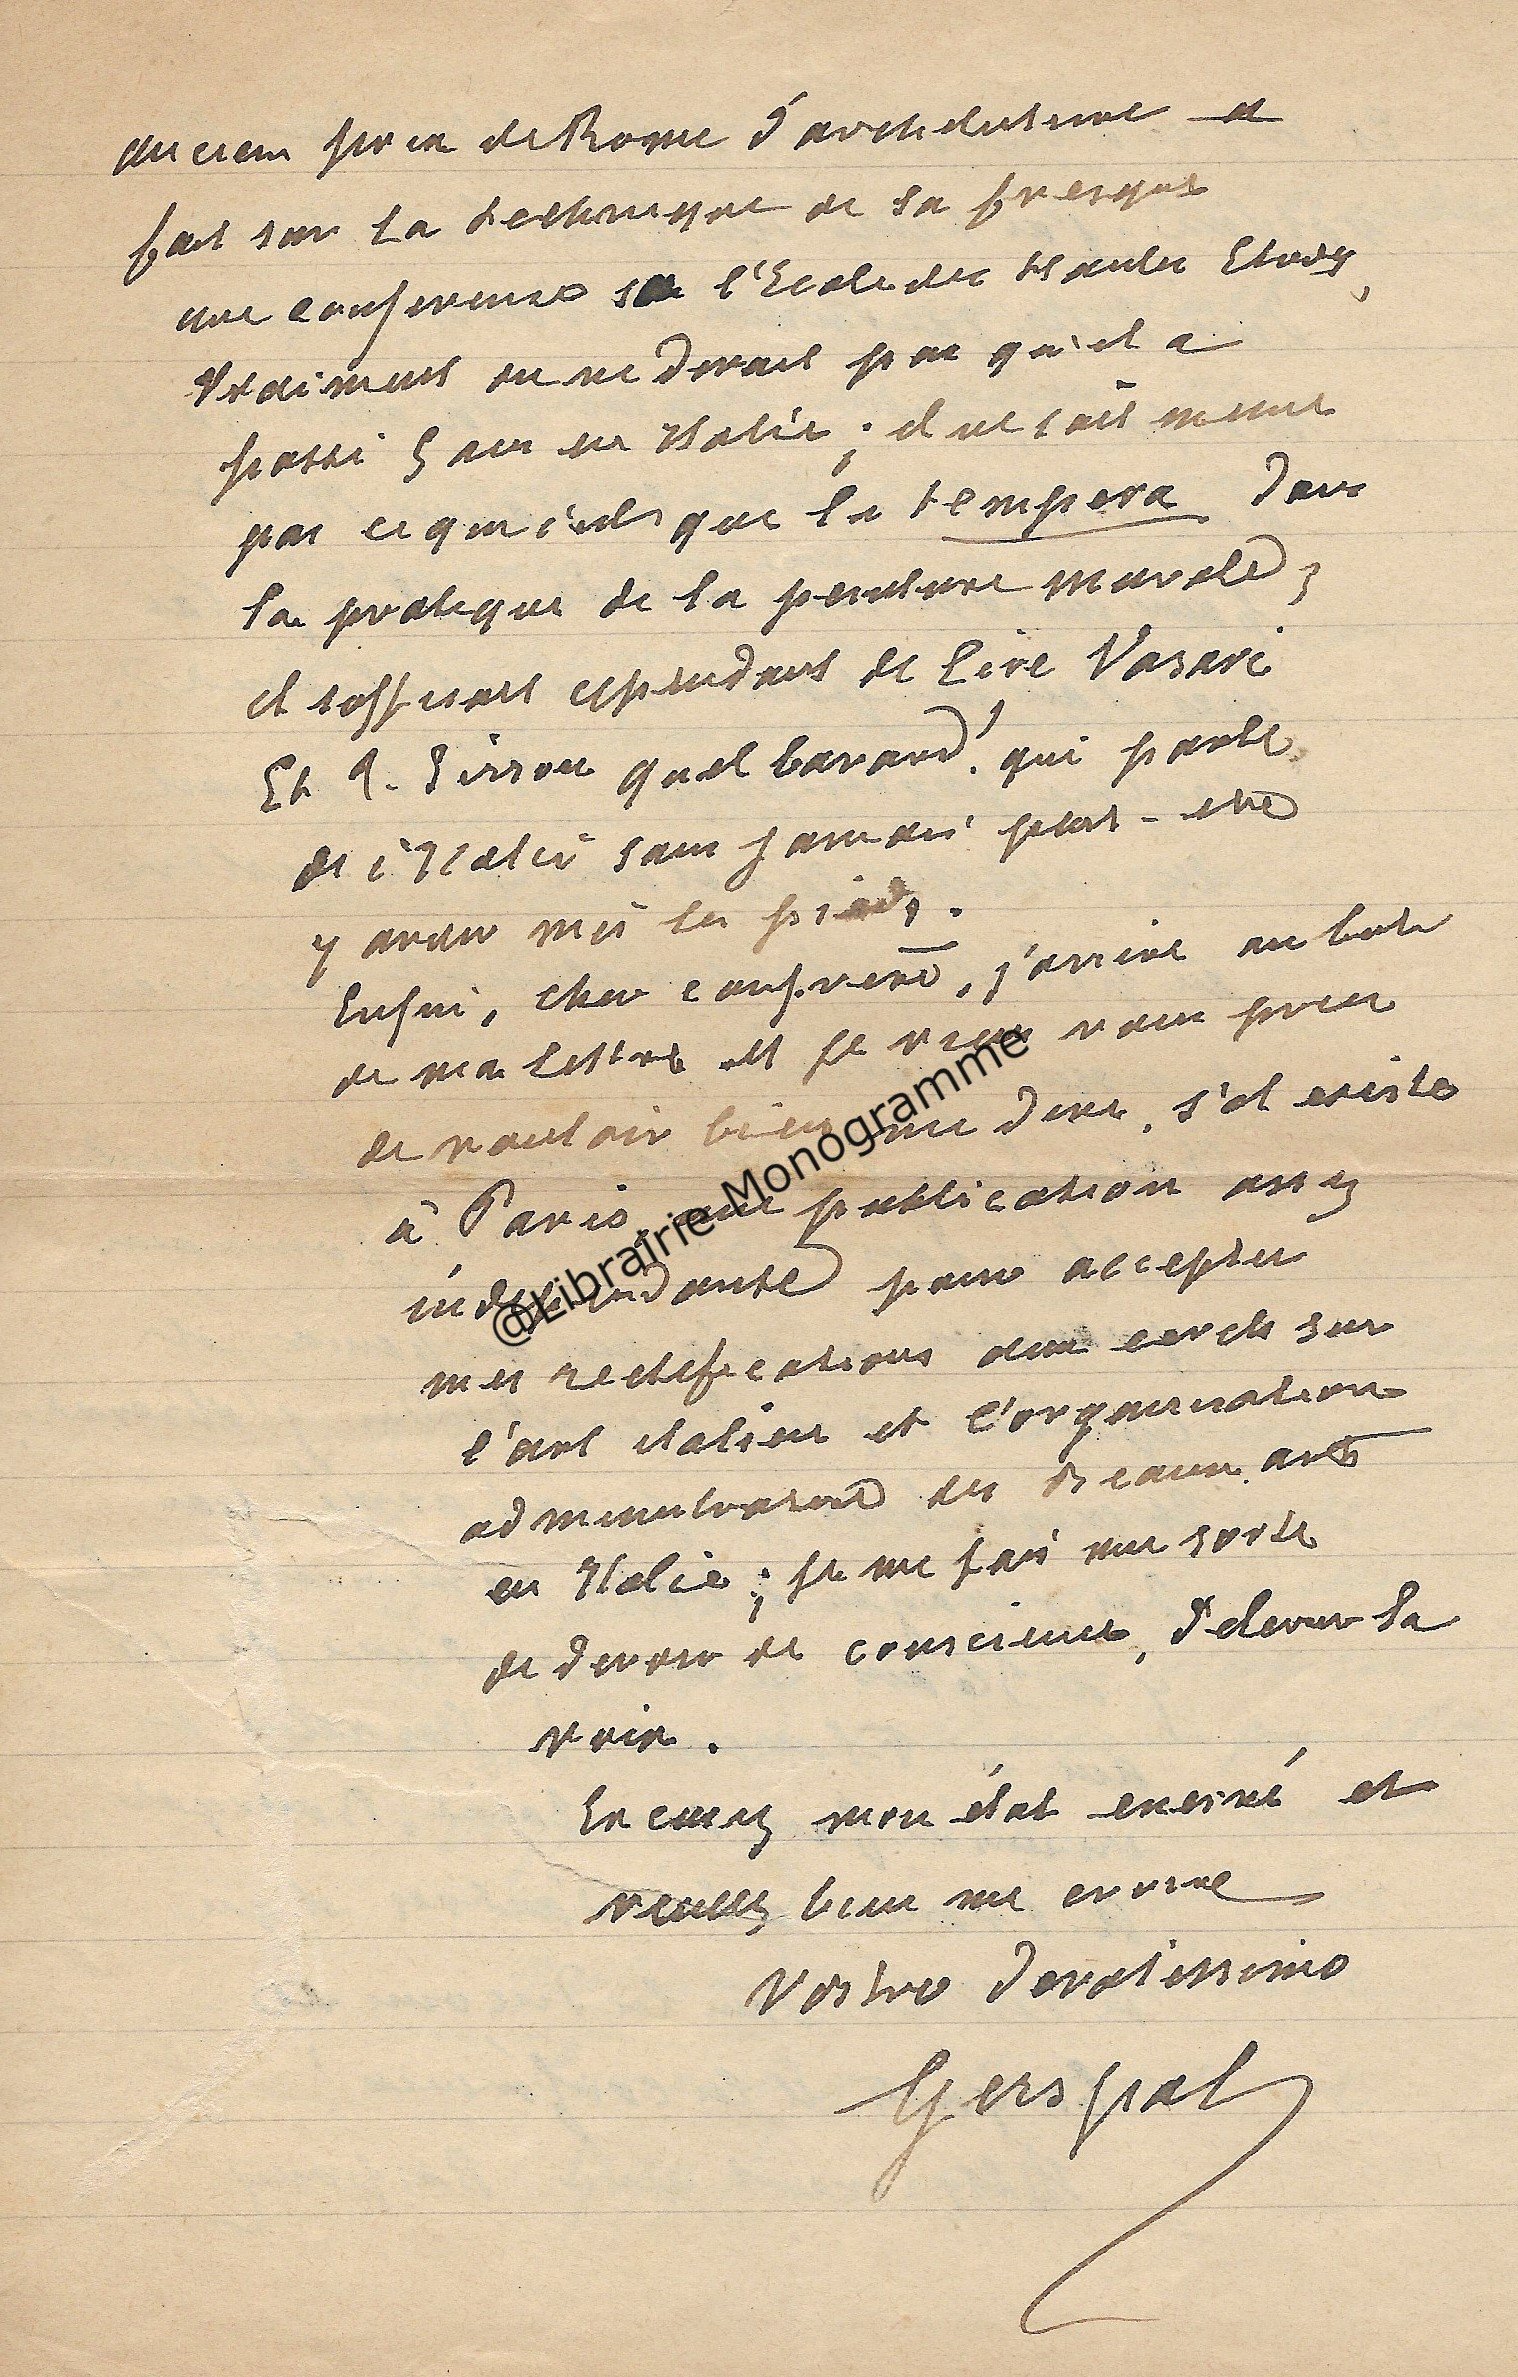 ancien prix de Rome d'architecture a
fait sur la technique de la fresque
une conference à l'Ecole des Hautes Etudes,
vraiment on ne dirait pas qu'il a
passé 5 ans en Italie ; il ne sait meme
pas ce que c'est que la tempera dans
la pratique de la peinture murale ;
il suffisait cependant de lire Vasari
Et quel bavard ! qui parle
de l'Italie sans jamais peut-etre
y avoir mis les pieds.
Enfin, cher confrere, j'arrive au but
de ma lettre et je viens vous prier
de vouloir bien me dire, s'il existe
à Paris, une publication assez
indépendante pour accepter
mes rectifications aux ecrits sur
l'art italien et l'organisation
administrative des Beaux arts
en Italie ; je me fais une sorte
de devoir de conscience, d'elever la
voix.
Excusez mon état enervé et
veuillez bien me croire
Vostro devotissimo
Gerspach
@Librairie Monogramme